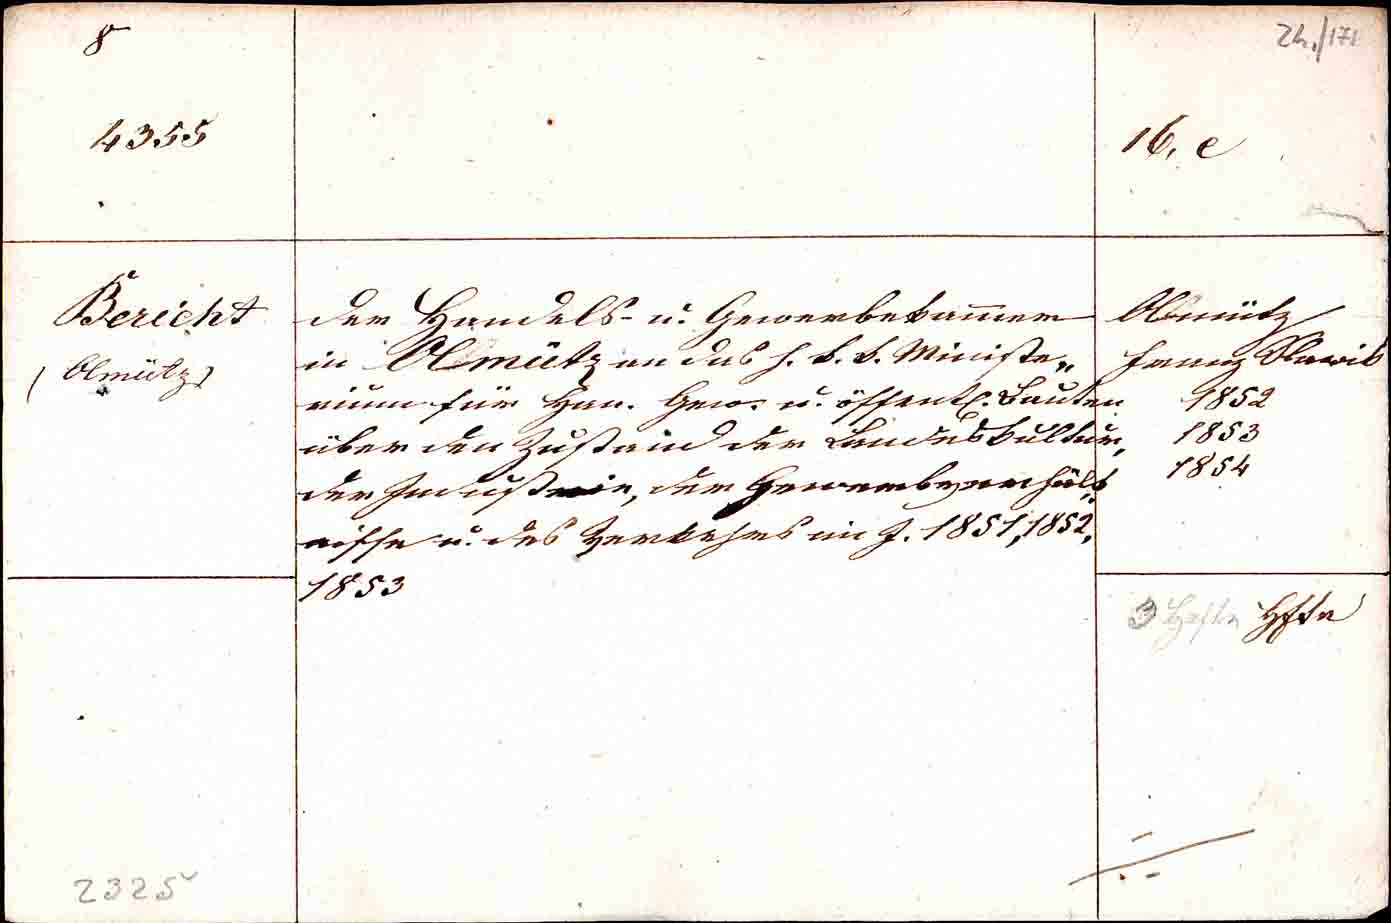 8
Zh./171
4355
16. e
Bericht
(Olmütz)
der Handels- u. Gewerbekam̄er
in Olmütz an das h. k. k. Ministe„
rium für Han. Gew. u. öffentl. Bauten
über den Zustand der Landeskultur,
der Industrie, der Gewerbsverhält„
nisse u. des Verkehrs im J. 1851, 1852,
1853
Olmütz
Franz Slawik
1852
1853
1854
3 Hefte Hfte
2325